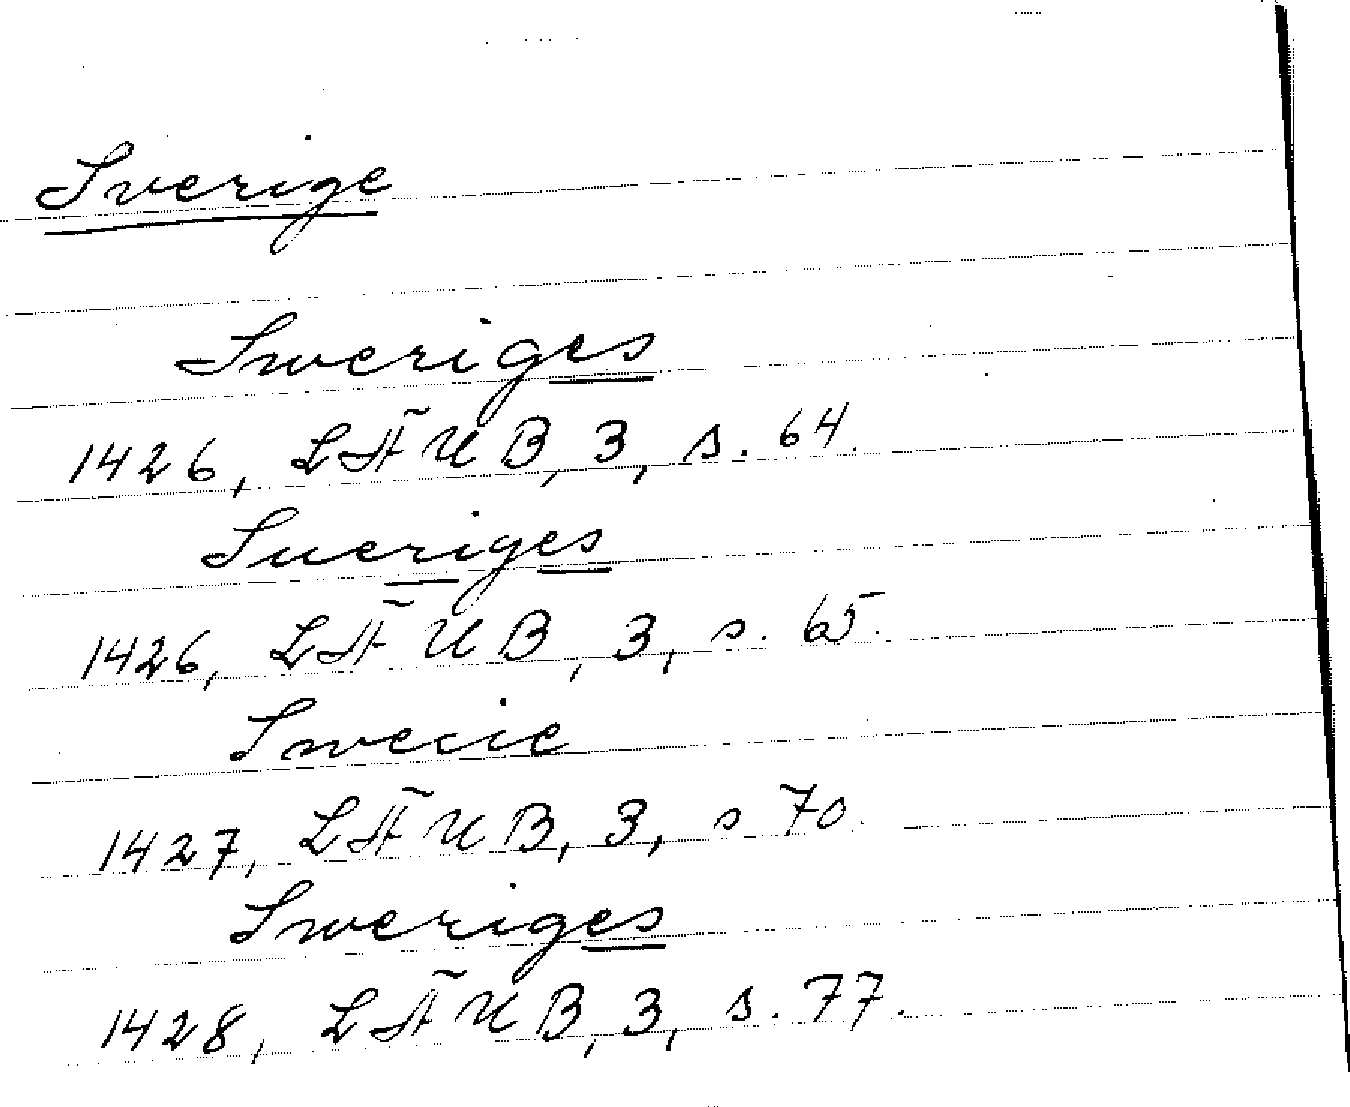 Sverige
Sweriges
1426, LÄUB, 3, s. 64.
Sueriges
1426, LÄUB, 3, s. 65.
Swecie
1427, LÄUB, 3, s 70.
Sweriges
1428, LÄUB, 3, s. 77.